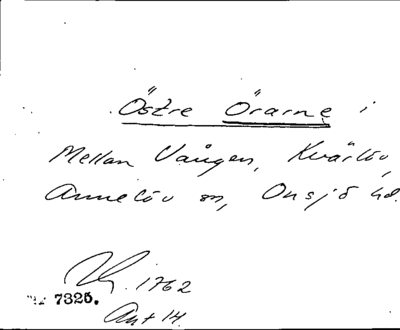 Östre Örarne i
Mellan Vången, Kvärlöv,
Annelöv sn, Onsjö hd.
1762
7325.
Akt 14.